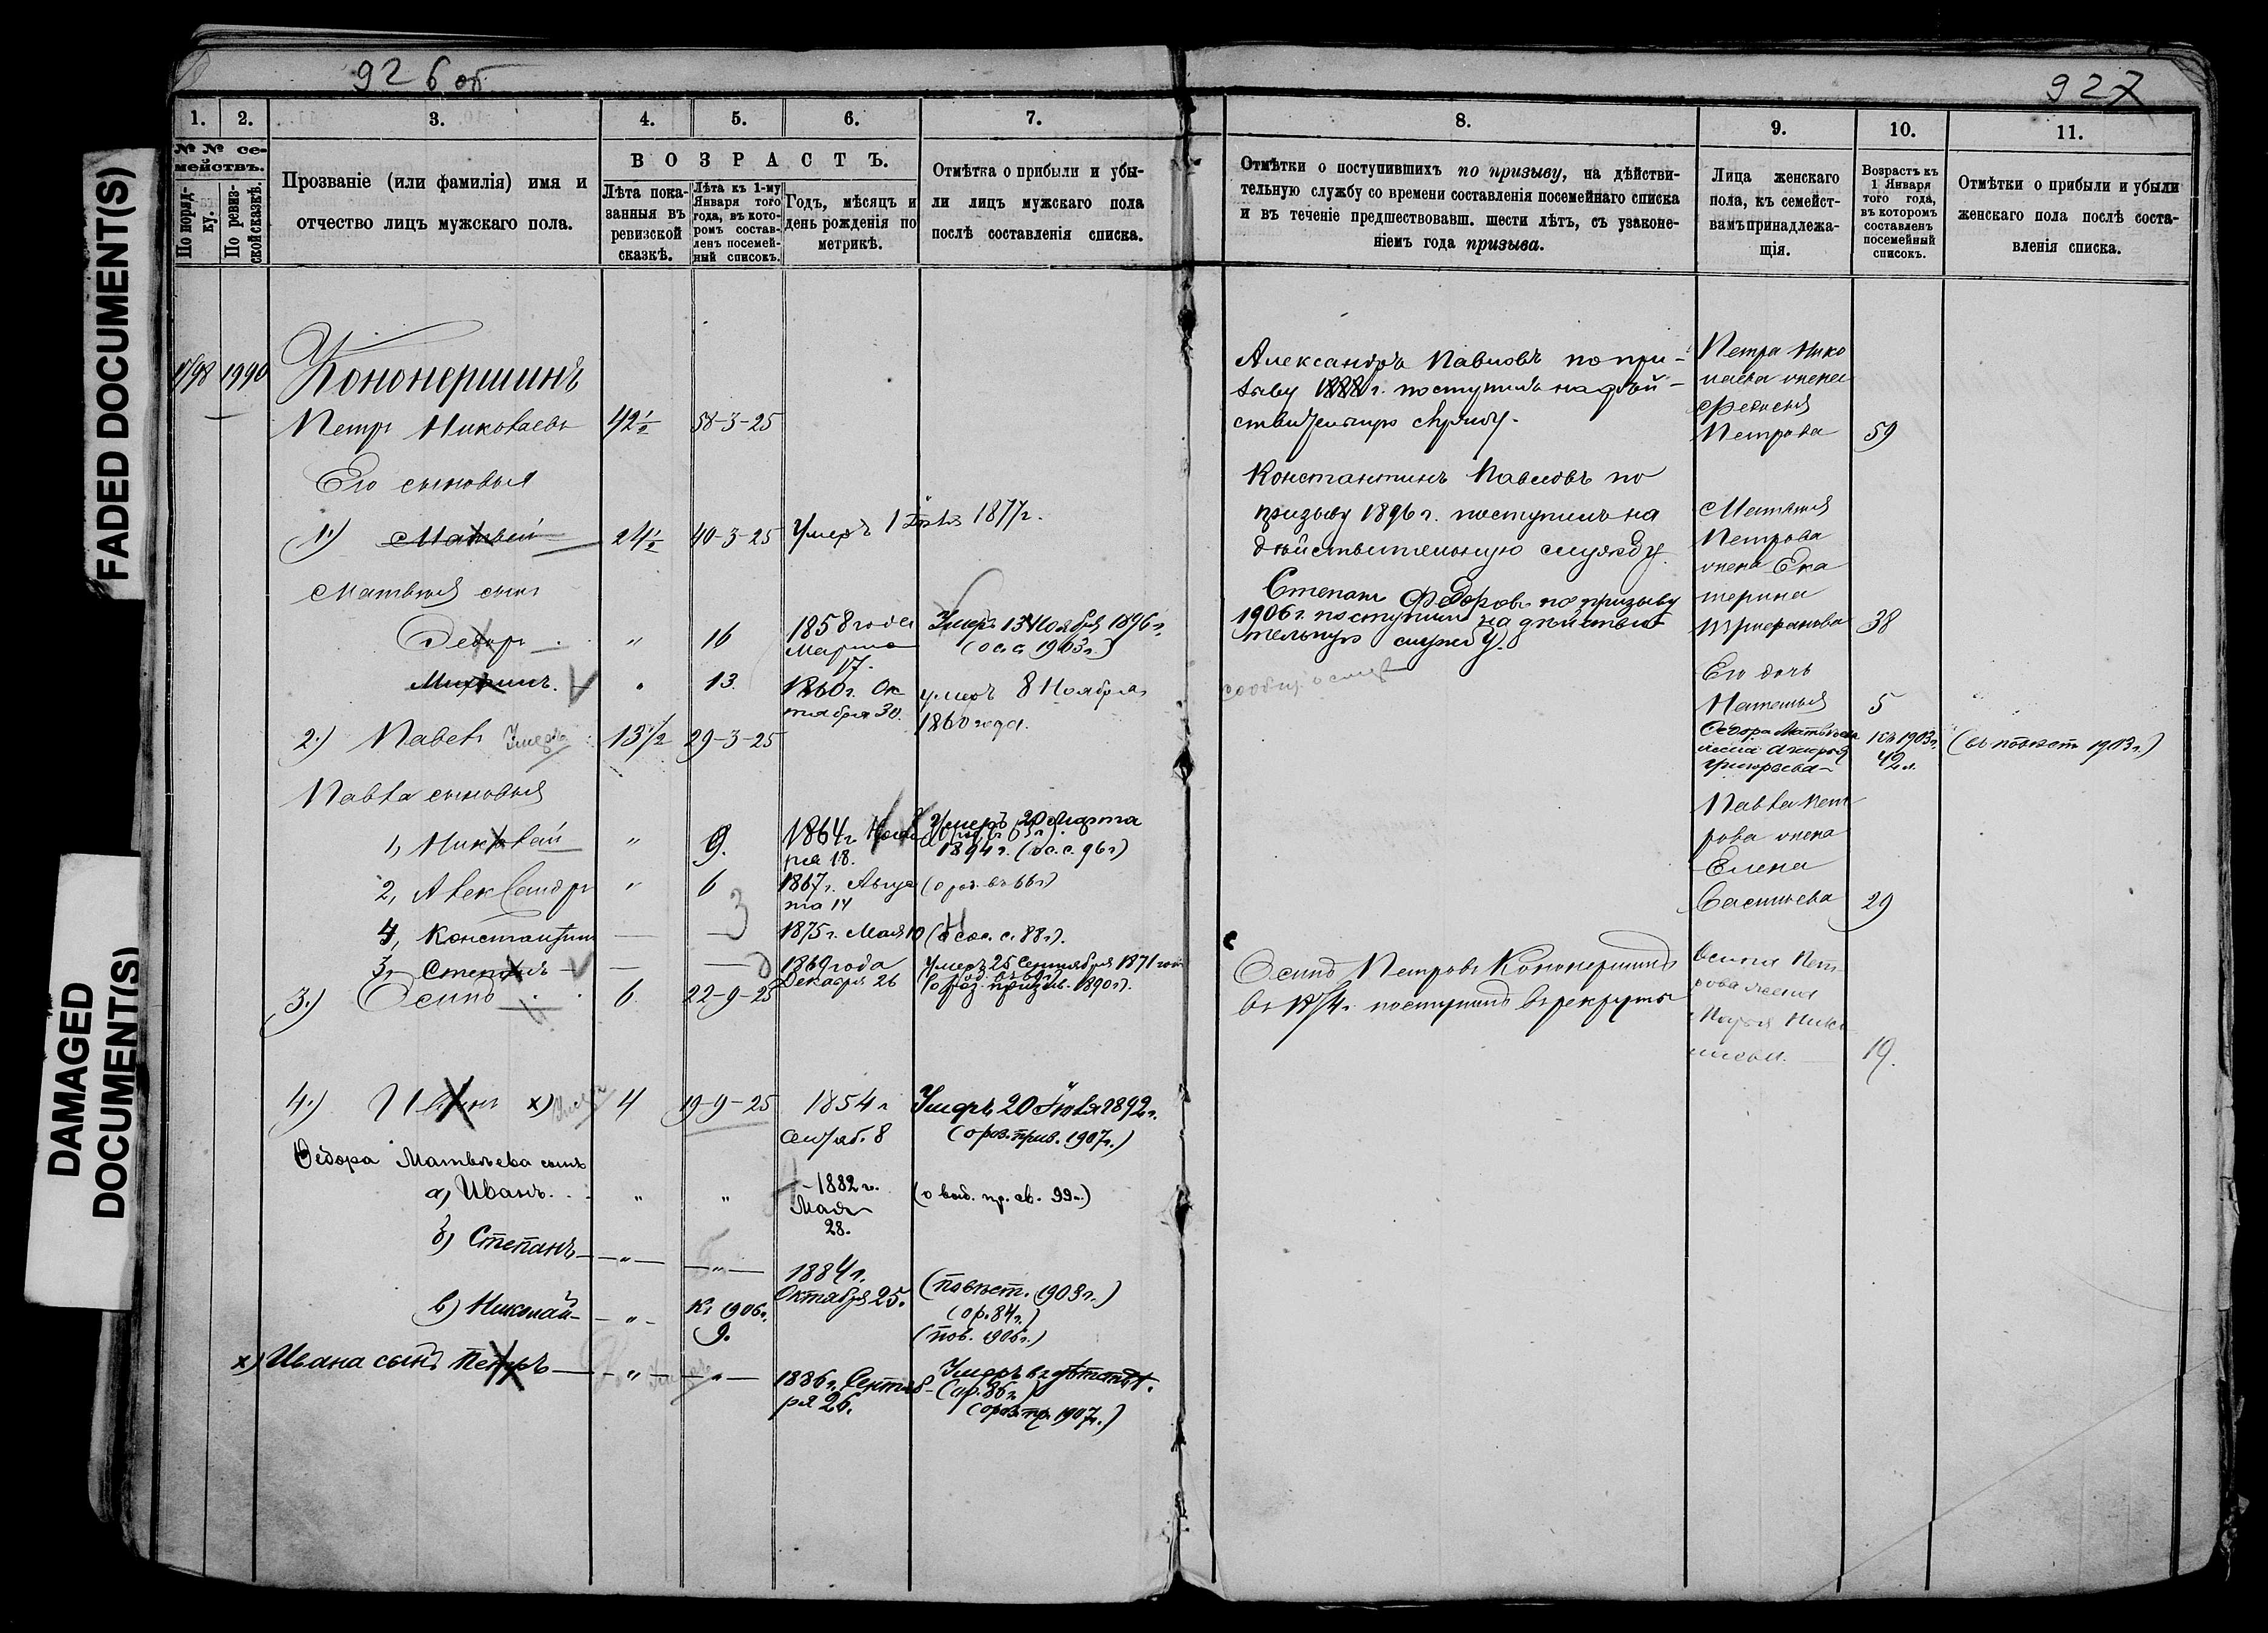 FADED DOCUMENT(S)
DAMAGED
DOCUMENT(S)
926 об
1.
2.
3.
4.
5.
6.
7.
№ № се-
мействъ.
По поряд-
ку.
По ревиз-
ской сказкѣ.
Прозваніе (или фамилія) имя и
отчество лицъ мужскаго пола.
ВОЗРАСТЪ.
Лѣта пока-
занныя въ
ревизской
сказкѣ.
Лѣта къ 1-му
Января того
года, въ кото-
ромъ состав-
ленъ посемей-
ный списокъ.
Годъ, мѣсяцъ и
день рожденія по
метрикѣ.
Отмѣтка о прибыли и убы-
ли лицъ мужскаго пола
послѣ составленія списка.
1990
Кононершинъ
Петръ Николаевъ 42½ 58-3-25
Его сыновья
1.) Матвей 24½ 40-3-25 Умеръ 1 1877г.
Матвея сынъ
Федоръ " 16 1858 года Марта 17. Умеръ 13 Ноября 1896 г.
(о с. с. 1903г.)
Михаилъ. " 13. 1860г. Ок
тября 30. умеръ 8 Ноября
1860 года.
2.) Павелъ Умеръ 13½ 29-3-25
Павла сыновья
1, Николай " 9. 1864г. Нояб
ря 18. Умеръ 20 Марта
1894г. (о с. с. 96г)
2, Александръ " 6 1867г. Авгус
та 14 (о род. въ 66г)
4, Константин — — 1875г. Мая 10 (о сос. с. 88г).
3, Степанъ — — — 1869 года
Декабря 26 Умеръ 25 Сентября 1871 года
3.) Осипъ 6. 22-9-25
4.) Иванъ х) Умеръ 4 19-9-25 1854г
Сентяб. 8 Умеръ 20 Іюля 1892г.
(о роз. приз. 1907г.)
Федора Матвѣева сынъ
а) Иванъ. " " 1882г.
Мая
28. (о выд. пр. св. 99г.)
б) Степанъ — " — — " — 1884г.
Октября 25. (повѣст. 1903г.)
(о р. 84г.)
в) Николай — " — Къ 1906г.
9. (пов. 1906г.)
х) Ивана сынъ Петръ — " — — " — 1886г. Сентяб-
ря 26. Умеръ въ
(ор. 86г.)
(о роз. пр. 1907г.)
927
8.
9.
10.
11.
Отмѣтки о поступившихъ по призыву, на дѣйстви-
тельную службу со времени составленія посемейнаго списка
и въ теченіе предшествовавш. шести лѣтъ, съ узаконе-
ніемъ года призыва.
Лица женскаго
пола, къ семейст-
вамъ принадлежа-
щія.
Возрастъ къ
1 Января
того года,
въ которомъ
составленъ
посемейный
списокъ.
Отмѣтки о прибыли и убыли
женскаго пола послѣ соста-
вленія списка.
Александръ Павловъ по при-
зыву 1888г. поступилъ на дѣй-
ствительную службу.
Константинъ Павловъ по
призыву 1896г. поступилъ на
дѣйствительную службу.
Степанъ Федоровъ по призыву
1906г. поступилъ на дѣйстви
тельную службу.
Осипъ Петровъ Кононершинъ
въ 1874г. поступилъ въ рекруты
Петра Нико
лаева жена
Федосья
Петрова 59
Матвея
Петрова
жена Ека
терина
38
Его дочь
Наталья 5
Федора Матвѣева
жена
Григорьева Къ 1903г.
42л. (въ повѣст. 1903г.)
Павла Пет
рова жена
Елена
29
Осипа Пет
рова жена
19.